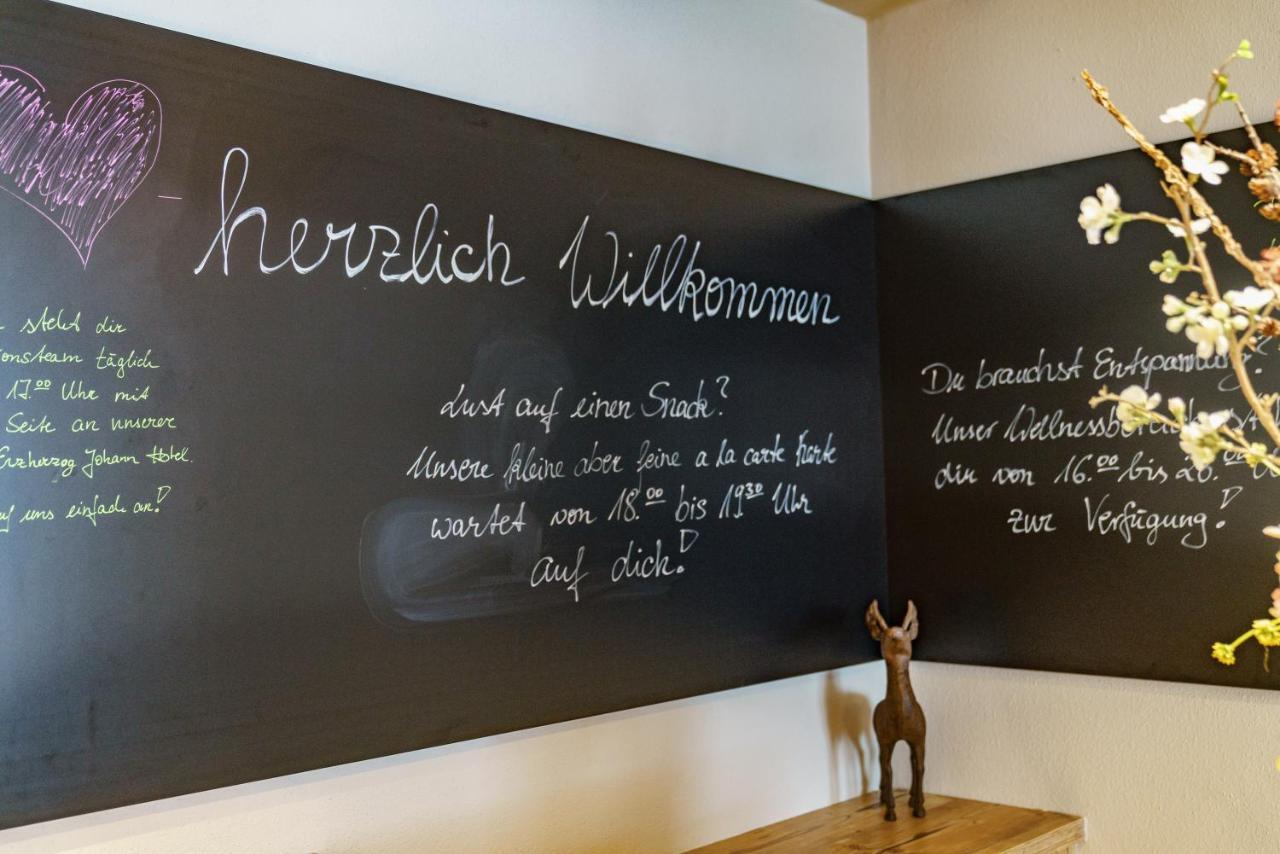 herzlich Willkommen
steht dir
onsteam täglich
17.00 Uhr mit
Seite an unserer
Erzherzog Johann Hotel.
uns einfach an!
Lust auf einen Snack?
Unsere kleine aber feine a la carte Karte
wartet von 18.00 bis 19 30 Uhr
auf dich!
Du brauchst Entspannung?
Unser Wellnessbereich steht
dir von 16.00 bis 20.00
zur Verfügung!